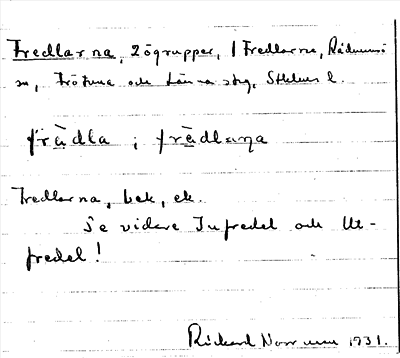 Fredlarna, 2 ögrupper, i Fredlarna, Rådmansö
sn, Frötuna och Länna skg, Sthlms l.
frädla i frädlana
Fredlarna, bek, ek.
Se vidare Infredel och Ut-
fredel!
Rickard Norrman 1931.